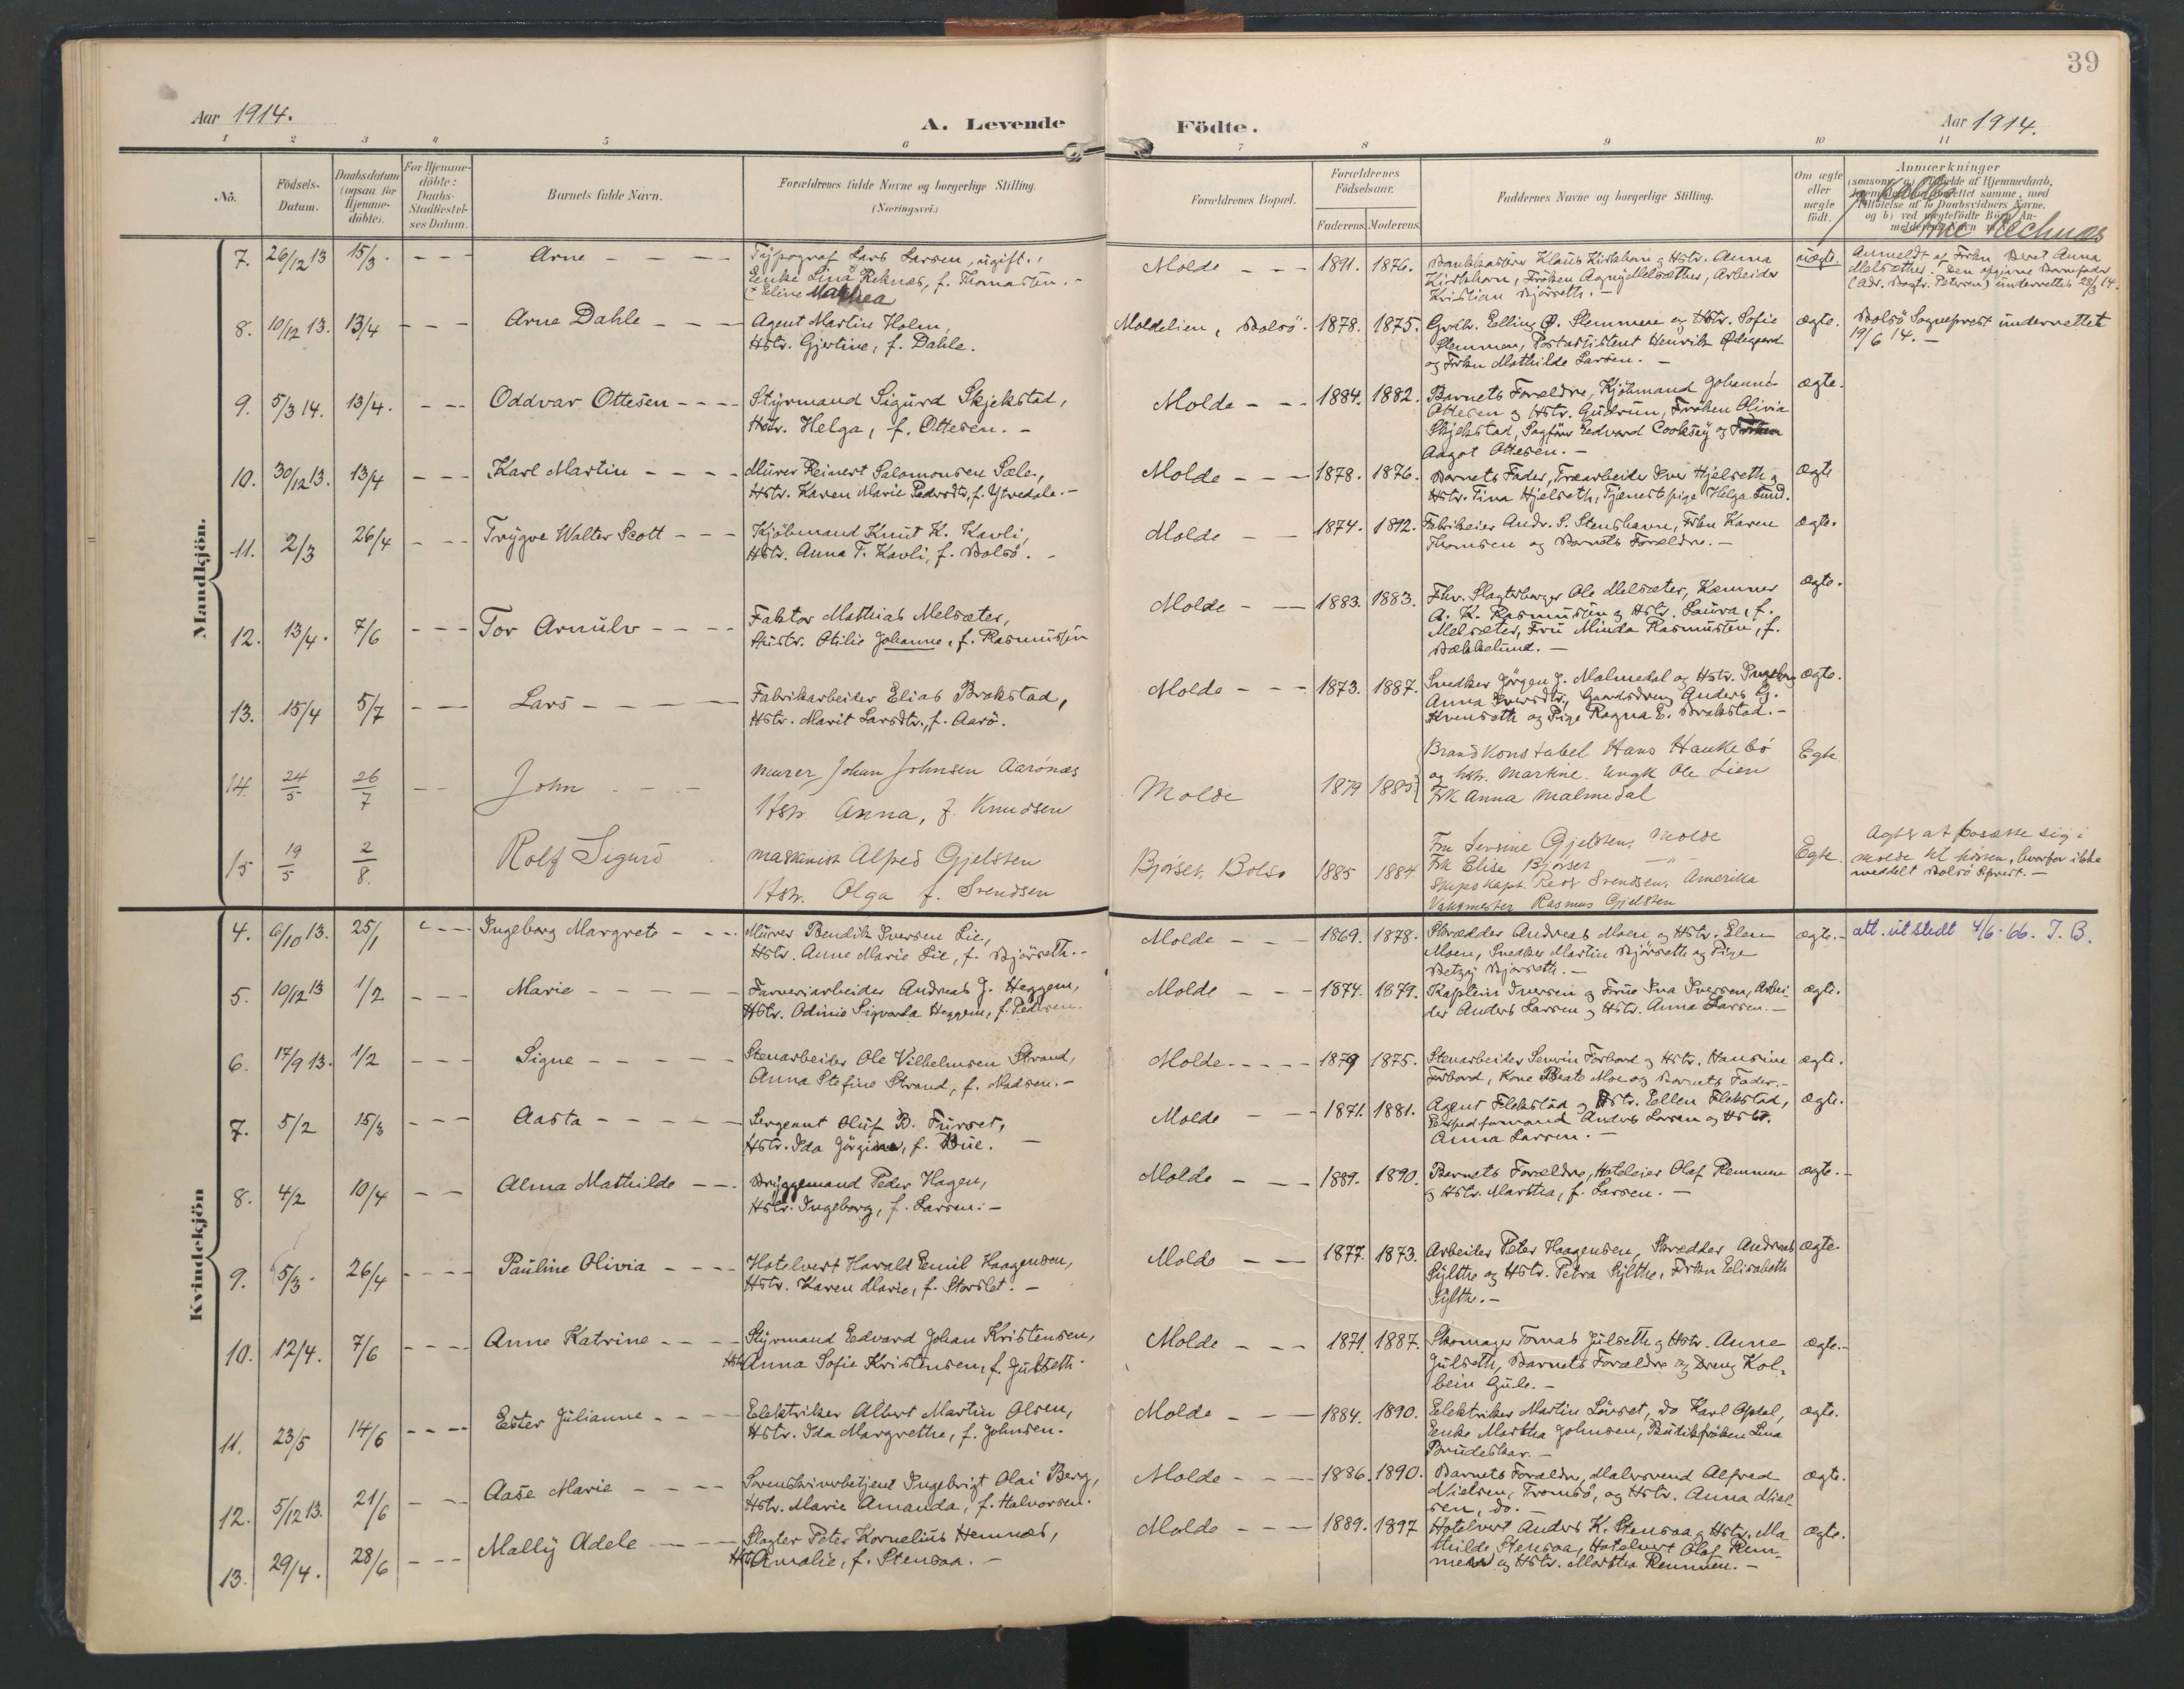 39
Aar 1914.
A. Levende Födte.
Aar 1914.
1 2 3 4 5 6 7 8 9 10 11
No.
Födsels-Datum.
Daabsdatum (ogsaa for Hjemmedöbte).
For Hjemmedöbte: Daabs-Stadfæstelses Datum.
Barnets fulde Navn.
Forældrenes fulde Navne og borgerlige Stilling. (Næringsvei.)
Forældrenes Bopæl.
Forældrenes Födselsaar.
Faderens. Moderens.
Faddernes Navne og borgerlige Stilling.
Om ægte eller uægte födt.
Anmærkninger
Mandkjön.
7. 26/12 13 15/3. - - - Arne - - - -
Typograf Lars Larsen, ugift.,
Enke Lina Reknæs, f. Thomassen. -
Eline Mathea
Molde - - - 1891. 1876.
Bankkasserer Klaus Kirkhorn og Hstr. Anna
Kirkhorn, Fröken Agny Melsæther, Arbeider
Kristian Bjørseth. -
uægte.
Anmeldt af Frkn Beret Anna
Melsæther. Den opgivne Barnefader
(Adr. Bogtr. Petersen) underrettet 28/3 14.
8. 10/12 13. 13/4 - - - Arne Dahle - - -
Agent Martin Holm,
Hstr. Gjertine, f. Dahle.
Moldelien, Bolsö. 1878. 1875.
Grdbr. Elling O. Slemmen og Hstr. Sofie
Slemmen, Postassistent Henrik Ødegaard
og Frkn Mathilde Larsen. -
ægte.
Bolsö Sogneprest underrettet
19/6 14. -
9. 5/3 14. 13/4. - - - Oddvar Ottesen - - - -
Styrmand Sigurd Skjekstad,
Hstr. Helga, f. Ottesen. -
Molde - - - 1884. 1882.
Barnets Forældre, Kjöbmand Johannes
Ottesen og Hstr. Gudrun, Fröken Olivia
Skjekstad, Sagfører Eedvard Cooksey og Fröken
Aagot Ottesen. -
ægte.
10. 30/12 13. 13/4 - - - Karl Martin - - - -
Murer Reinert Salomonsen Sæle,
Hstr. Karen Marie Pedersdtr, f. Ytredale. -
Molde - - - 1878. 1876.
Barnets Fader, Træarbeider Iver Hjelseth og
Hstr. Tina Hjelseth, Tjenestepige Helga Sund.
ægte
11. 2/3 26/4 - - - Trygve Walter Scott - - -
Kjöbmand Knut K. Kavli,
Hstr. Anna T. Kavli, f. Bolsö. -
Molde - - 1874. 1892.
Fabrikeier Andr. S. Stenshavn, Frkn Karen
Thomsen og Barnets Forældre. -
ægte.
12. 13/4. 7/6 - - - Tor Arnulv - - - -
Faktor Mathias Melsæter,
Hustr. Otilie Johanne, f. Rasmussen
Molde - - 1883. 1883.
Fhv. Slagterborger Ole Melsæter, Kæmner
A. K. Rasmussen og Hstr. Laura, f.
Melsæter, Fru Minda Rasmussen, f.
Bækkelund. -
ægte.
13. 15/4 5/7 - - - Lars - - - -
Fabrikarbeider Elias Brakstad,
Hstr. Marit Larsdtr., f. Aarö.
Molde - - - 1873. 1887.
Snedker Jörgen J. Malmedal og Hstr. Ingeborg
Anna Iversdtr., Gaardsdreng Anders G.
Kvenseth og Pige Ragna E. Brakstad. -
ægte.
14. 24/5 26/7 - - John - - -
Murer Johan Johnsen Aarönæs
Hstr. Anna, f. Knudsen
Molde 1879 1885
Brandkonstabel Hans Haukebö
og hstr. Martine. Ungk Ole Lien
Frk Anna Malmedal
Egte.
15 19/5 2/8. Rolf Sigurd
Maskinist Alfred Gjelsten
Hstr. Olga f. Svendsen
Bjørset, Bolsø 1885 1884
Fru Serine Gjelsten, Molde
Frk Elise Bjørset -"-
Skipskapt. Svendsen, Amerika
Vaktmester Rasmus Gjelsten
Egte.
Agter at bosætte sig i
Molde til høsten, hvorfor ikke
meddelt Bolsö Sprest. -
Kvindekjön
4. 6/10 13. 25/1 - - - Ingeborg Margrete - - -
Murer Bendik Iversen Lie,
Hstr. Anne Marie Lie, f. Bjørseth. -
Molde - - - 1869. 1878.
Skrædder Andreas Moen og Hstr. Elen
Moen, Snedker Martin Bjørseth og Pige
Betzy Bjørseth. -
ægte. -
att. utstedt 4/6-66. J. B.
5. 10/12 13 1/2 - - - Marie - - - -
Farveriarbeider Andreas J. Heggem,
Hstr. Odinie Sigvarda Heggem, f. Pedersen.
Molde - - - 1874. 1879.
Kaptein Iversen og Frue Ina Iversen, Arbei-
der Anders Larsen og Hstr. Anna Larsen. -
ægte.
6. 17/9 13. 1/2 - - - Signe - - - -
Stenarbeider Ole Vilhelmsen Strand,
Anna Stefine Strand, f. Madsen. -
Molde - - - - 1879 1875.
Stenarbeider Severin Forbord og Hstr. Hansine
Forbord, Kone Beate Moe og Barnets Fader. -
ægte.
7. 5/2 15/3 - - - Aasta - - - -
Sergeant Oluf B. Furset,
Hstr. Ida Jörgine, f. Bue. -
Molde - - 1871. 1881.
Agent Flekstad og Hstr. Ellen Flekstad,
Anders Larsen og Hstr.
Anna Larsen. -
ægte.
8. 4/2 10/4 - - Alma Mathilde - -
Bryggemand Peder Hagen,
Hstr. Ingeborg, f. Larsen. -
Molde - - - 1889. 1890.
Barnets Forældre, Hoteleier Olaf Remmen
og Hstr. Martha, f. Larsen. -
ægte. -
9. 5/3. 26/4 - - - - Pauline Olivia - - - -
Hotelvert Harald Emil Haagensen,
Hstr. Karen Marie, f. Storslet. -
Molde - - 1877. 1873.
Arbeider Peter Haagensen, Skrædder Andreas
Sylthe og Hstr. Petra Sylthe, Frkn Elisabeth
Sylthe. -
ægte.
10. 12/4. 7/6 - - - - Anne Katrine - - -
Styrmand Eedvard Johan Kristensen,
Hstr. Anna Sofie Kristensen, f. Julseth.
Molde - - - 1871. 1887.
Skomager Tomas Julseth og Hstr. Anne
Julseth, Barnets Forældre og Dreng Kol-
bein Gule. -
ægte. -
11. 23/5 14/6 - - - - Ester Julianne - - -
Elektriker Albert Martin Olsen,
Hstr. Ida Margrethe, f. Johnsen.
Molde - - - 1884. 1890.
Elektriker Martin Lönset, do Karl Opdal,
Enke Martha Johnsen, Budikfröken Lina
Brudeskar. -
ægte.
12. 5/12 13. 21/6 - - - Aase Marie - - - -
Sorenskriverbetjent Ingebrigt Olai Berg,
Hstr. Marie Amanda, f. Halvorsen.
Molde - - - 1886. 1890.
Barnets Forældre, Malersvend Alfred
Nielsen, Tromsö, og Hstr. Anna Niel-
sen, do. -
ægte.
13. 29/4. 28/6 - - - Mally Adele - - -
Slagter Peter Kornelius Hemnæs,
Hstr. Amalie, f. Stensaa. -
Molde - - - 1889. 1897
Hotelvert Anders K. Stensaa og Hstr. Ma-
thilde Stensaa, Hotelvert Olaf Rem-
men og Hstr. Martha Remmen. -
ægte.